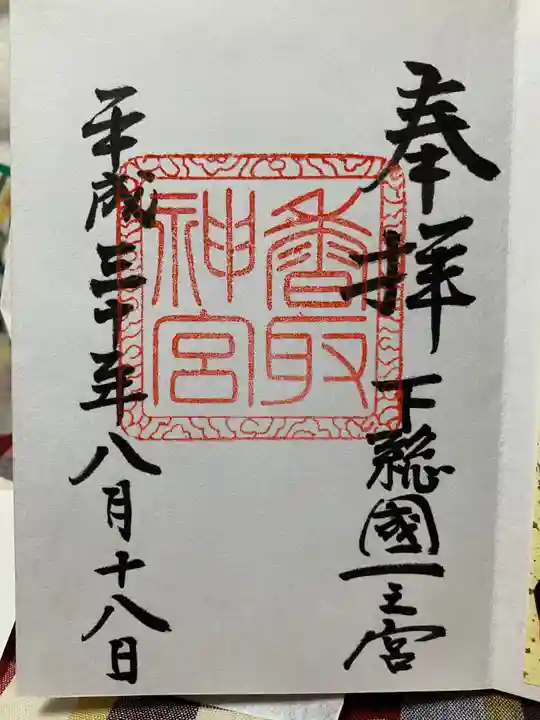 奉拝
下総國一之宮
香取
神宮
平成三十年八月十八日